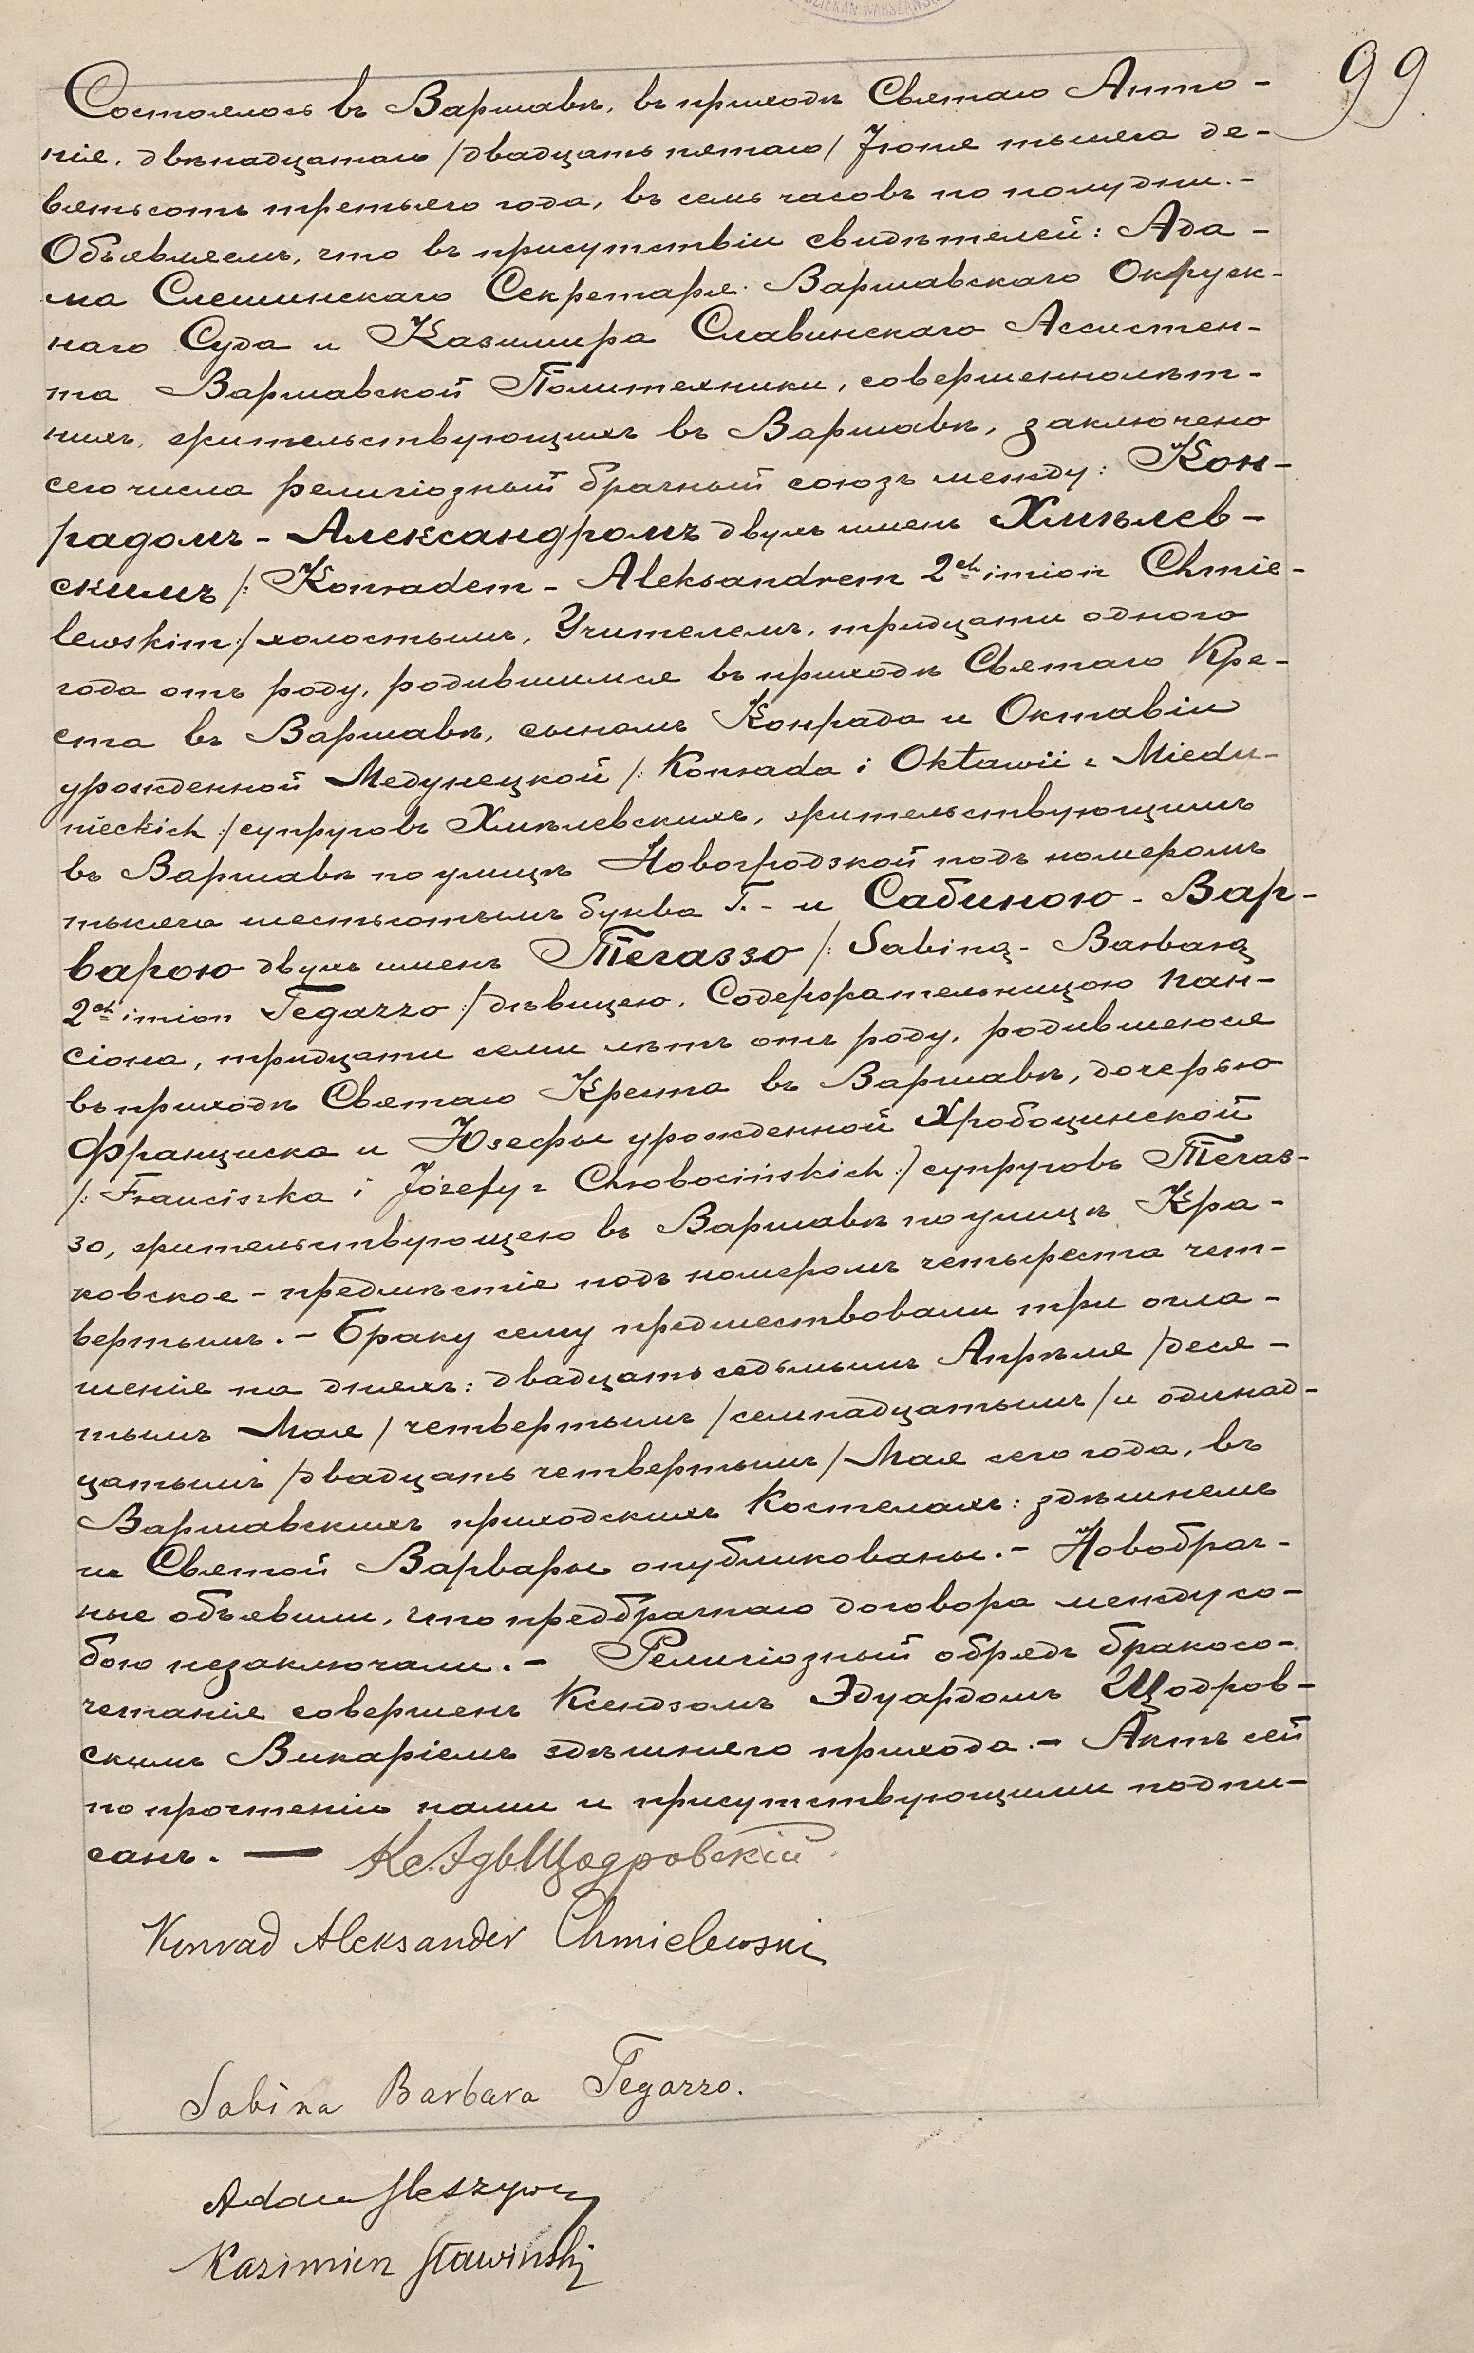 DZIEKAN WARSZAWSKI
99.
Состоялось въ Варшавѣ, въ приходѣ Святаго Анто-
нія, двѣнадцатаго /двадцать пятаго/ Іюня тысяча де-
вятьсотъ третьяго года, въ семь часовъ по полудни.-
Объявляемъ, что въ присутствіи свидѣтелей: Ада-
ма Слешинскаго Секретаря Варшавскаго Окруж-
наго Суда и Казимира Славинскаго Ассистен-
та Варшавской Политехники, совершеннолѣт-
нихъ, жительствующихъ въ Варшавѣ, заключено
сего числа религіозный брачный союзъ между: Кон-
радомъ - Александромъ двухъ именъ Хмѣлев-
скимъ /: Konradem - Aleksandrem 2ch imion Chmie-
lewskim :/ холостымъ, Учителемъ, тридцати одного
года отъ роду, родившимся въ приходѣ Святаго Кре-
ста въ Варшавѣ, сыномъ Конрада и Октавіи
урожденной Медунецкой /: Konrada i Oktawii z Miedu-
nieckich :/ супруговъ Хмѣлевскихъ, жительствующимъ
въ Варшавѣ по улицѣ Новогродзкой подъ номеромъ
тысяча шестьсотымъ буква Г. - и Сабиною - Вар-
варою двухъ именъ Тегаззо /: Sabiną - Barbarą
2ch imion Tegazzo :/ дѣвицею, Содержательницою пан-
сіона, тридцати семи лѣтъ отъ роду, родившеюся
въ приходѣ Святаго Креста въ Варшавѣ, дочерью
Франциска и Юзефы урожденной Хробоцинской
/: Franciszka i Józefy z Chrobocińskich :/ супруговъ Тегаз-
зо, жительствующею въ Варшавѣ по улицѣ Кра-
ковское - предмѣстіе подъ номеромъ четыреста чет-
вертымъ. - Браку сему предшествовали три огла-
шенія на дняхъ: двадцать седьмымъ Апрѣля /деся-
тымъ Мая/ четвертымъ /семнадцатымъ/ и одинад-
цатымъ /двадцать четвертымъ/ Мая сего года, въ
Варшавскихъ приходскихъ Костелахъ: здѣшнемъ
и Святой Варвары опубликованы. - Новобрач-
ные объявили, что предбрачнаго договора между со-
бою незаключали. - Религіозный обрядъ бракосо-
четанія совершенъ Ксендзомъ Эдуардомъ Щодров-
скимъ Викаріемъ здѣшняго прихода. - Актъ сей
по прочтеніи нами и присутствующими подпи-
санъ. — Кс. Эдв Щодровскій.
Konrad Aleksander Chmielewski
Sabina Barbara Tegazzo.
Adam Sleszyński
Kazimierz Sławiński